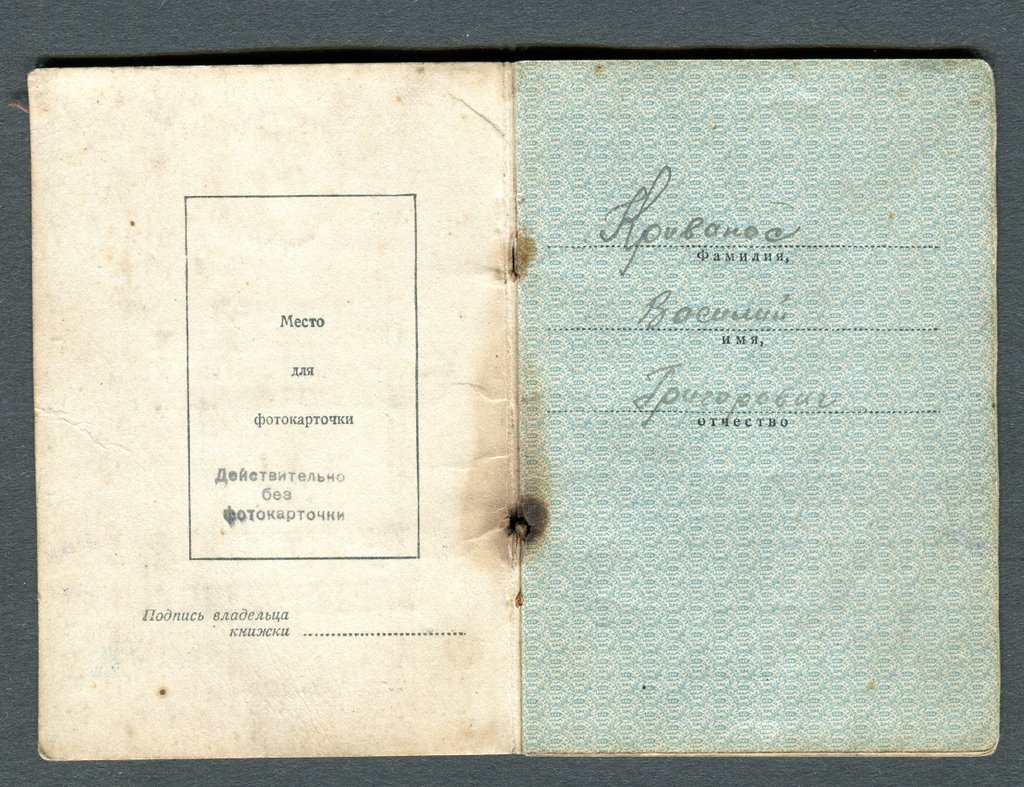 Место
для
фотокарточки
Действительно
без
фотокарточки
Подпись владельца
книжки
Кривонос
Фамилия,
Василий
имя,
Григорович
отчество